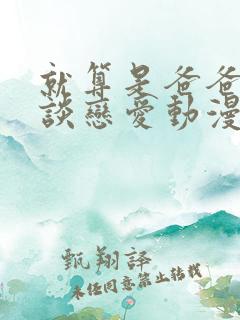 就算是爸爸
談戀愛動漫
甄翔譯
未经同意禁止转载